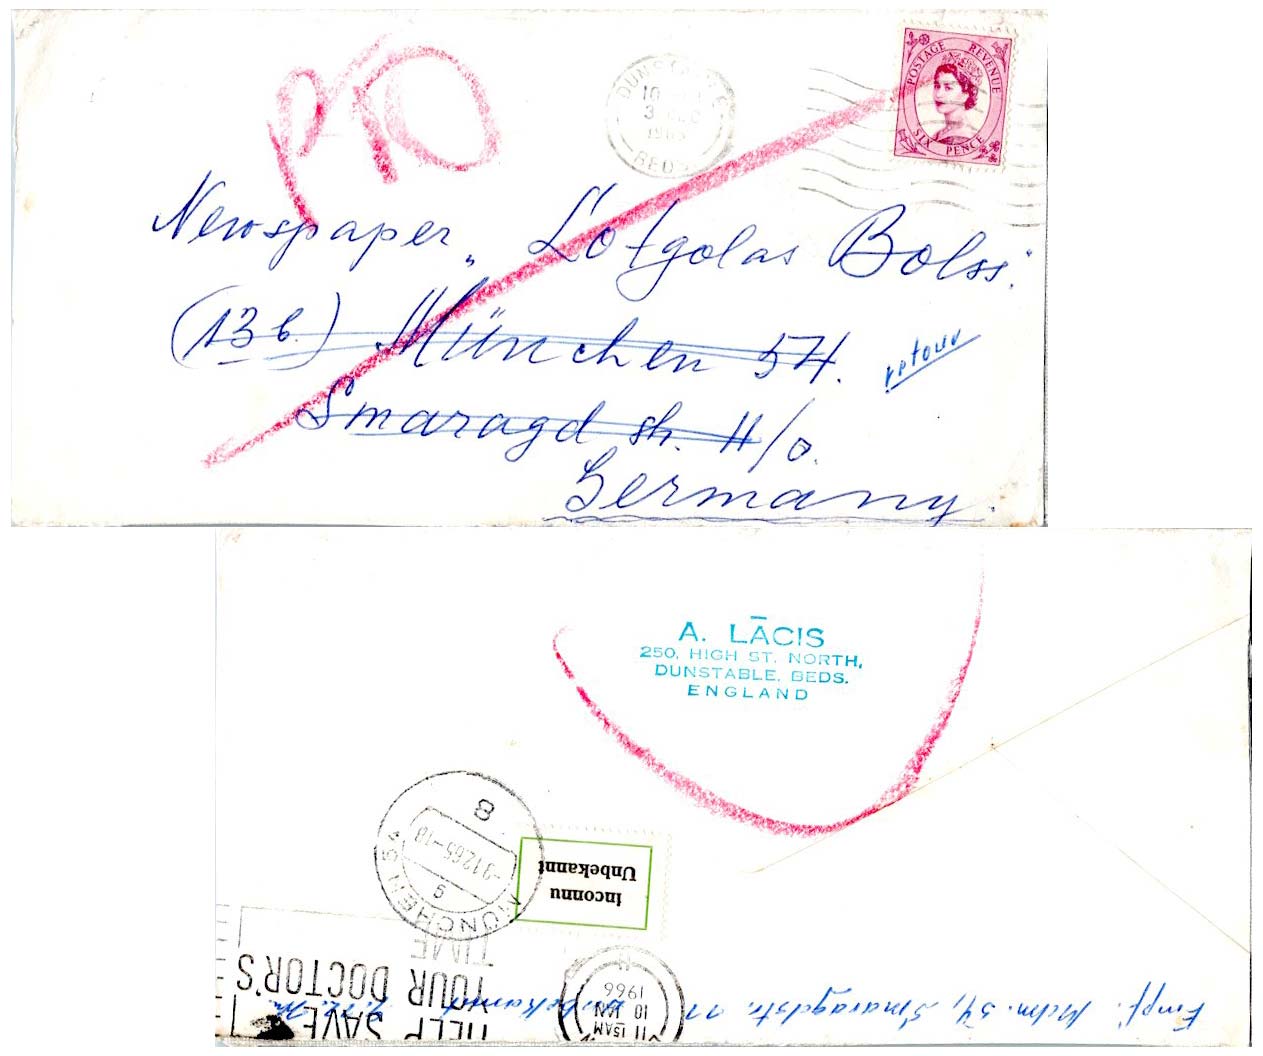 PTO
DUNSTABLE
3 DEC
1965
BEDS
POSTAGE REVENUE
SIX PENCE
Newspaper „Lotgolas Bolss.”
(13b.) München 54.
retour
Smaragd str. 11/0.
Germany.
A. LĀCIS
250, HIGH ST. NORTH,
DUNSTABLE, BEDS.
ENGLAND
MÜNCHEN 54
g
-9.12.65-18
8
inconnu
Unbekannt
HELP SAVE
YOUR DOCTOR'S
TIME
11 15AM
10 JAN
1966
Empf. Mchn. 54, Smaragdstr. 11 unbekannt